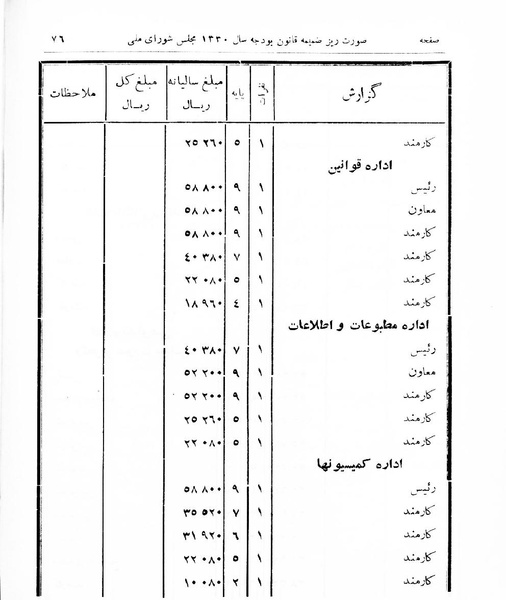 صفحه صورت ریز ضمیمه قانون بودجه سال ۱۳۳۰ مجلس شورای ملی ۷۶
گزارش نفرات پایه مبلغ سالیانه ریال مبلغ کل ریال ملاحظات
کارمند ۱ ۵ ۲۵ ۲۶۰
اداره قوانین
رئیس ۱ ۹ ۵۸ ۸۰۰
معاون ۱ ۹ ۵۸ ۸۰۰
کارمند ۱ ۹ ۵۸ ۸۰۰
کارمند ۱ ۷ ٤۰ ۳۸۰
کارمند ۱ ۵ ۲۲ ۰۸۰
کارمند ۱ ٤ ۱۸ ۹٦۰
اداره مطبوعات و اطلاعات
رئیس ۱ ۷ ٤۰ ۳۸۰
معاون ۱ ۹ ۵۲ ۲۰۰
کارمند ۱ ۹ ۵۲ ۲۰۰
کارمند ۱ ۵ ۲۵ ۲٦۰
کارمند ۱ ۵ ۲۲ ۰۸۰
اداره کمیسیونها
رئیس ۱ ۹ ۵۸ ۸۰۰
کارمند ۱ ۷ ۳۵ ۵۲۰
کارمند ۱ ٦ ۳۱ ۹۲۰
کارمند ۱ ۵ ۲۲ ۰۸۰
کارمند ۱ ۲ ۱۰ ۰۸۰